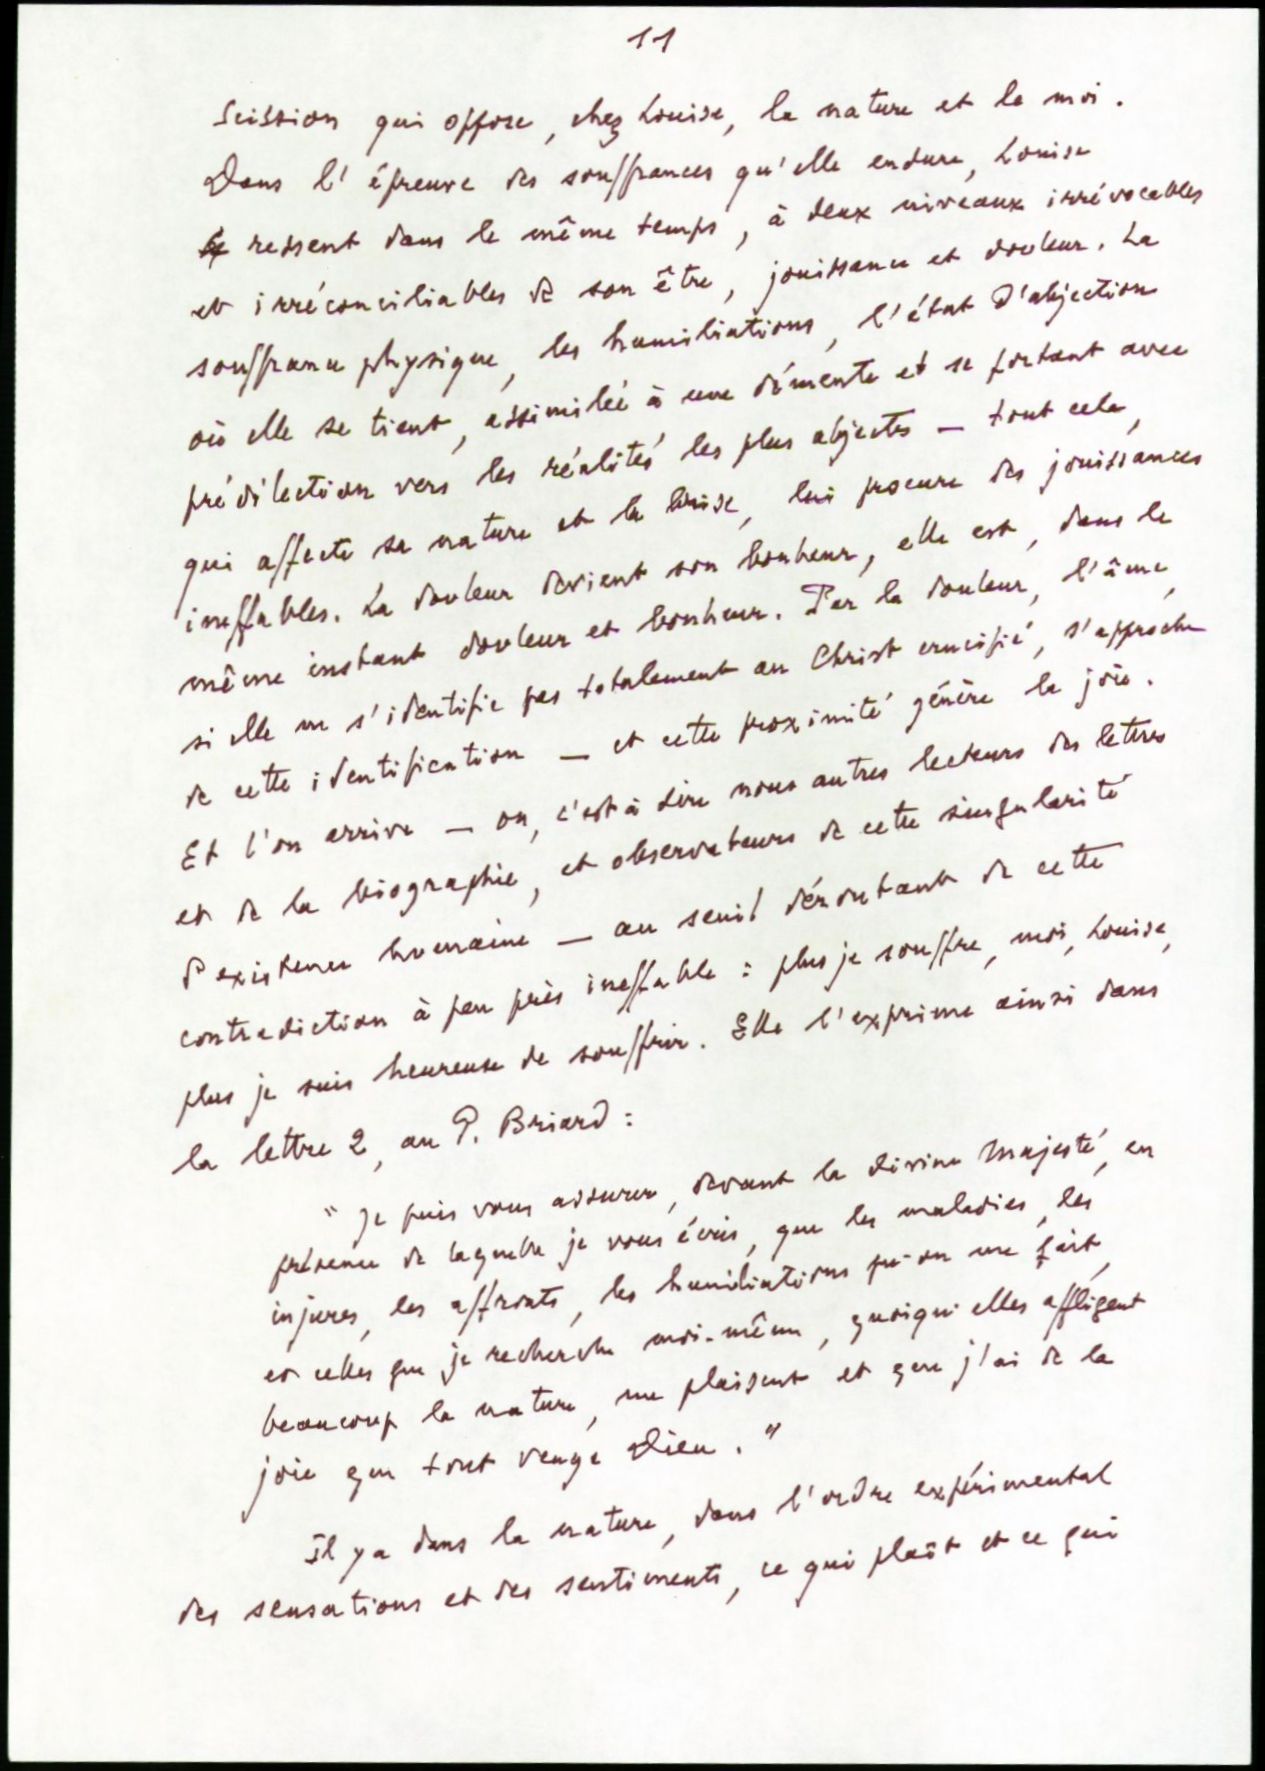 11
scission qui oppose, chez Louise, la nature et le moi.
Dans l'épreuve des souffrances qu'elle endure, Louise
ressent dans le même temps, à deux niveaux irrévocables
et irréconciliables de son être, jouissance et douleur. La
souffrance physique, les humiliations, l'état d'abjection
où elle se tient, assimilée à une démente et se portant avec
prédilection vers les réalités les plus abjectes — tout cela,
qui affecte sa nature et la brise, lui procure des jouissances
ineffables. La douleur devient son bonheur, elle est, dans le
même instant douleur et bonheur. Par la douleur, l'âme,
si elle ne s'identifie pas totalement au Christ crucifié, s'approche
de cette identification — et cette proximité génère la joie.
Et l'on arrive — on, c'est à dire nous autres lecteurs des lettres
et de la biographie, et observateurs de cette singularité
d'existence humaine — au seuil déroutant de cette
contradiction à peu près ineffable : plus je souffre, moi, Louise,
plus je suis heureuse de souffrir. Elle l'exprime ainsi dans
la lettre 2, au P. Briard :
"Je puis vous assurer, devant la divine Majesté, en
présence de laquelle je vous écris, que les maladies, les
injures, les affronts, les humiliations qu'on me fait,
et celles que je recherche moi-même, quoiqu'elles affligent
beaucoup la nature, me plaisent et que j'ai de la
joie que tout venge Dieu."
Il y a dans la nature, dans l'ordre expérimental
des sensations et des sentiments, ce qui plaît et ce qui